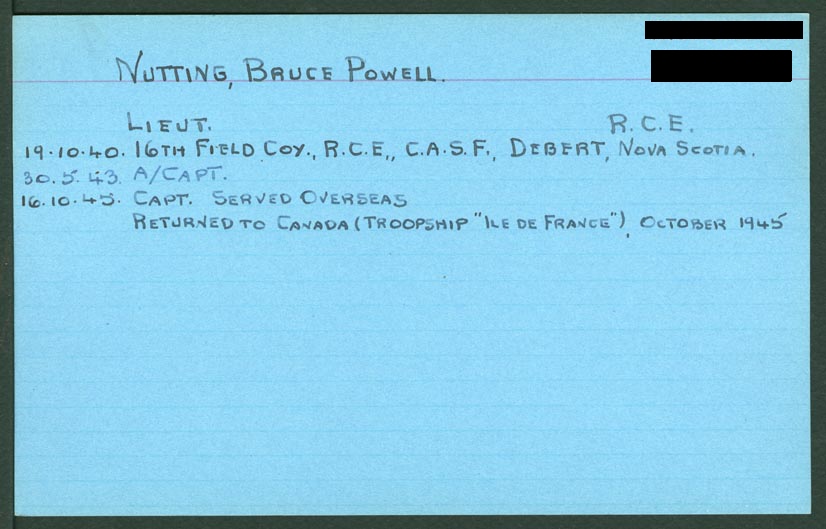 NUTTING, BRUCE POWELL.
LIEUT. R.C.E.
19.10.40. 16TH FIELD COY., R.C.E., C.A.S.F., DEBERT, NOVA SCOTIA.
30.5.43. A/CAPT.
16.10.45. CAPT. SERVED OVERSEAS
RETURNED TO CANADA (TROOPSHIP "ILE DE FRANCE"), OCTOBER 1945